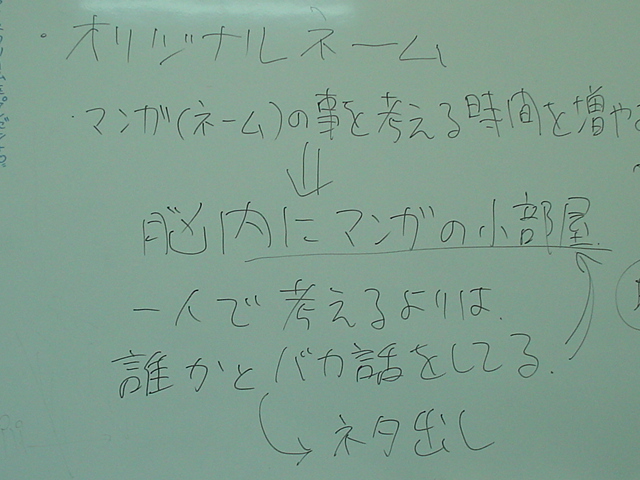 ・オリジナルネーム
・マンガ(ネーム)の事を考える時間を増やる
脳内にマンガの小部屋
一人で考えるよりは、
誰かとバカ話をしてる.
ネタ出し